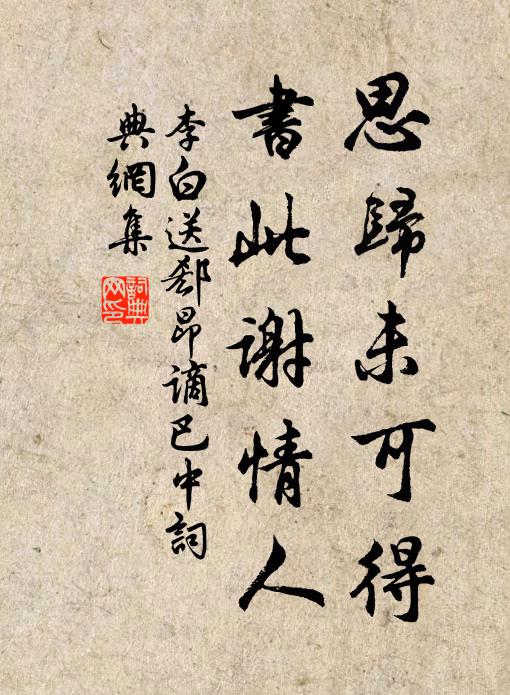 思歸未可得
書此謝情人
李白送郄昂謫巴中詞
典網集
詞典
网印